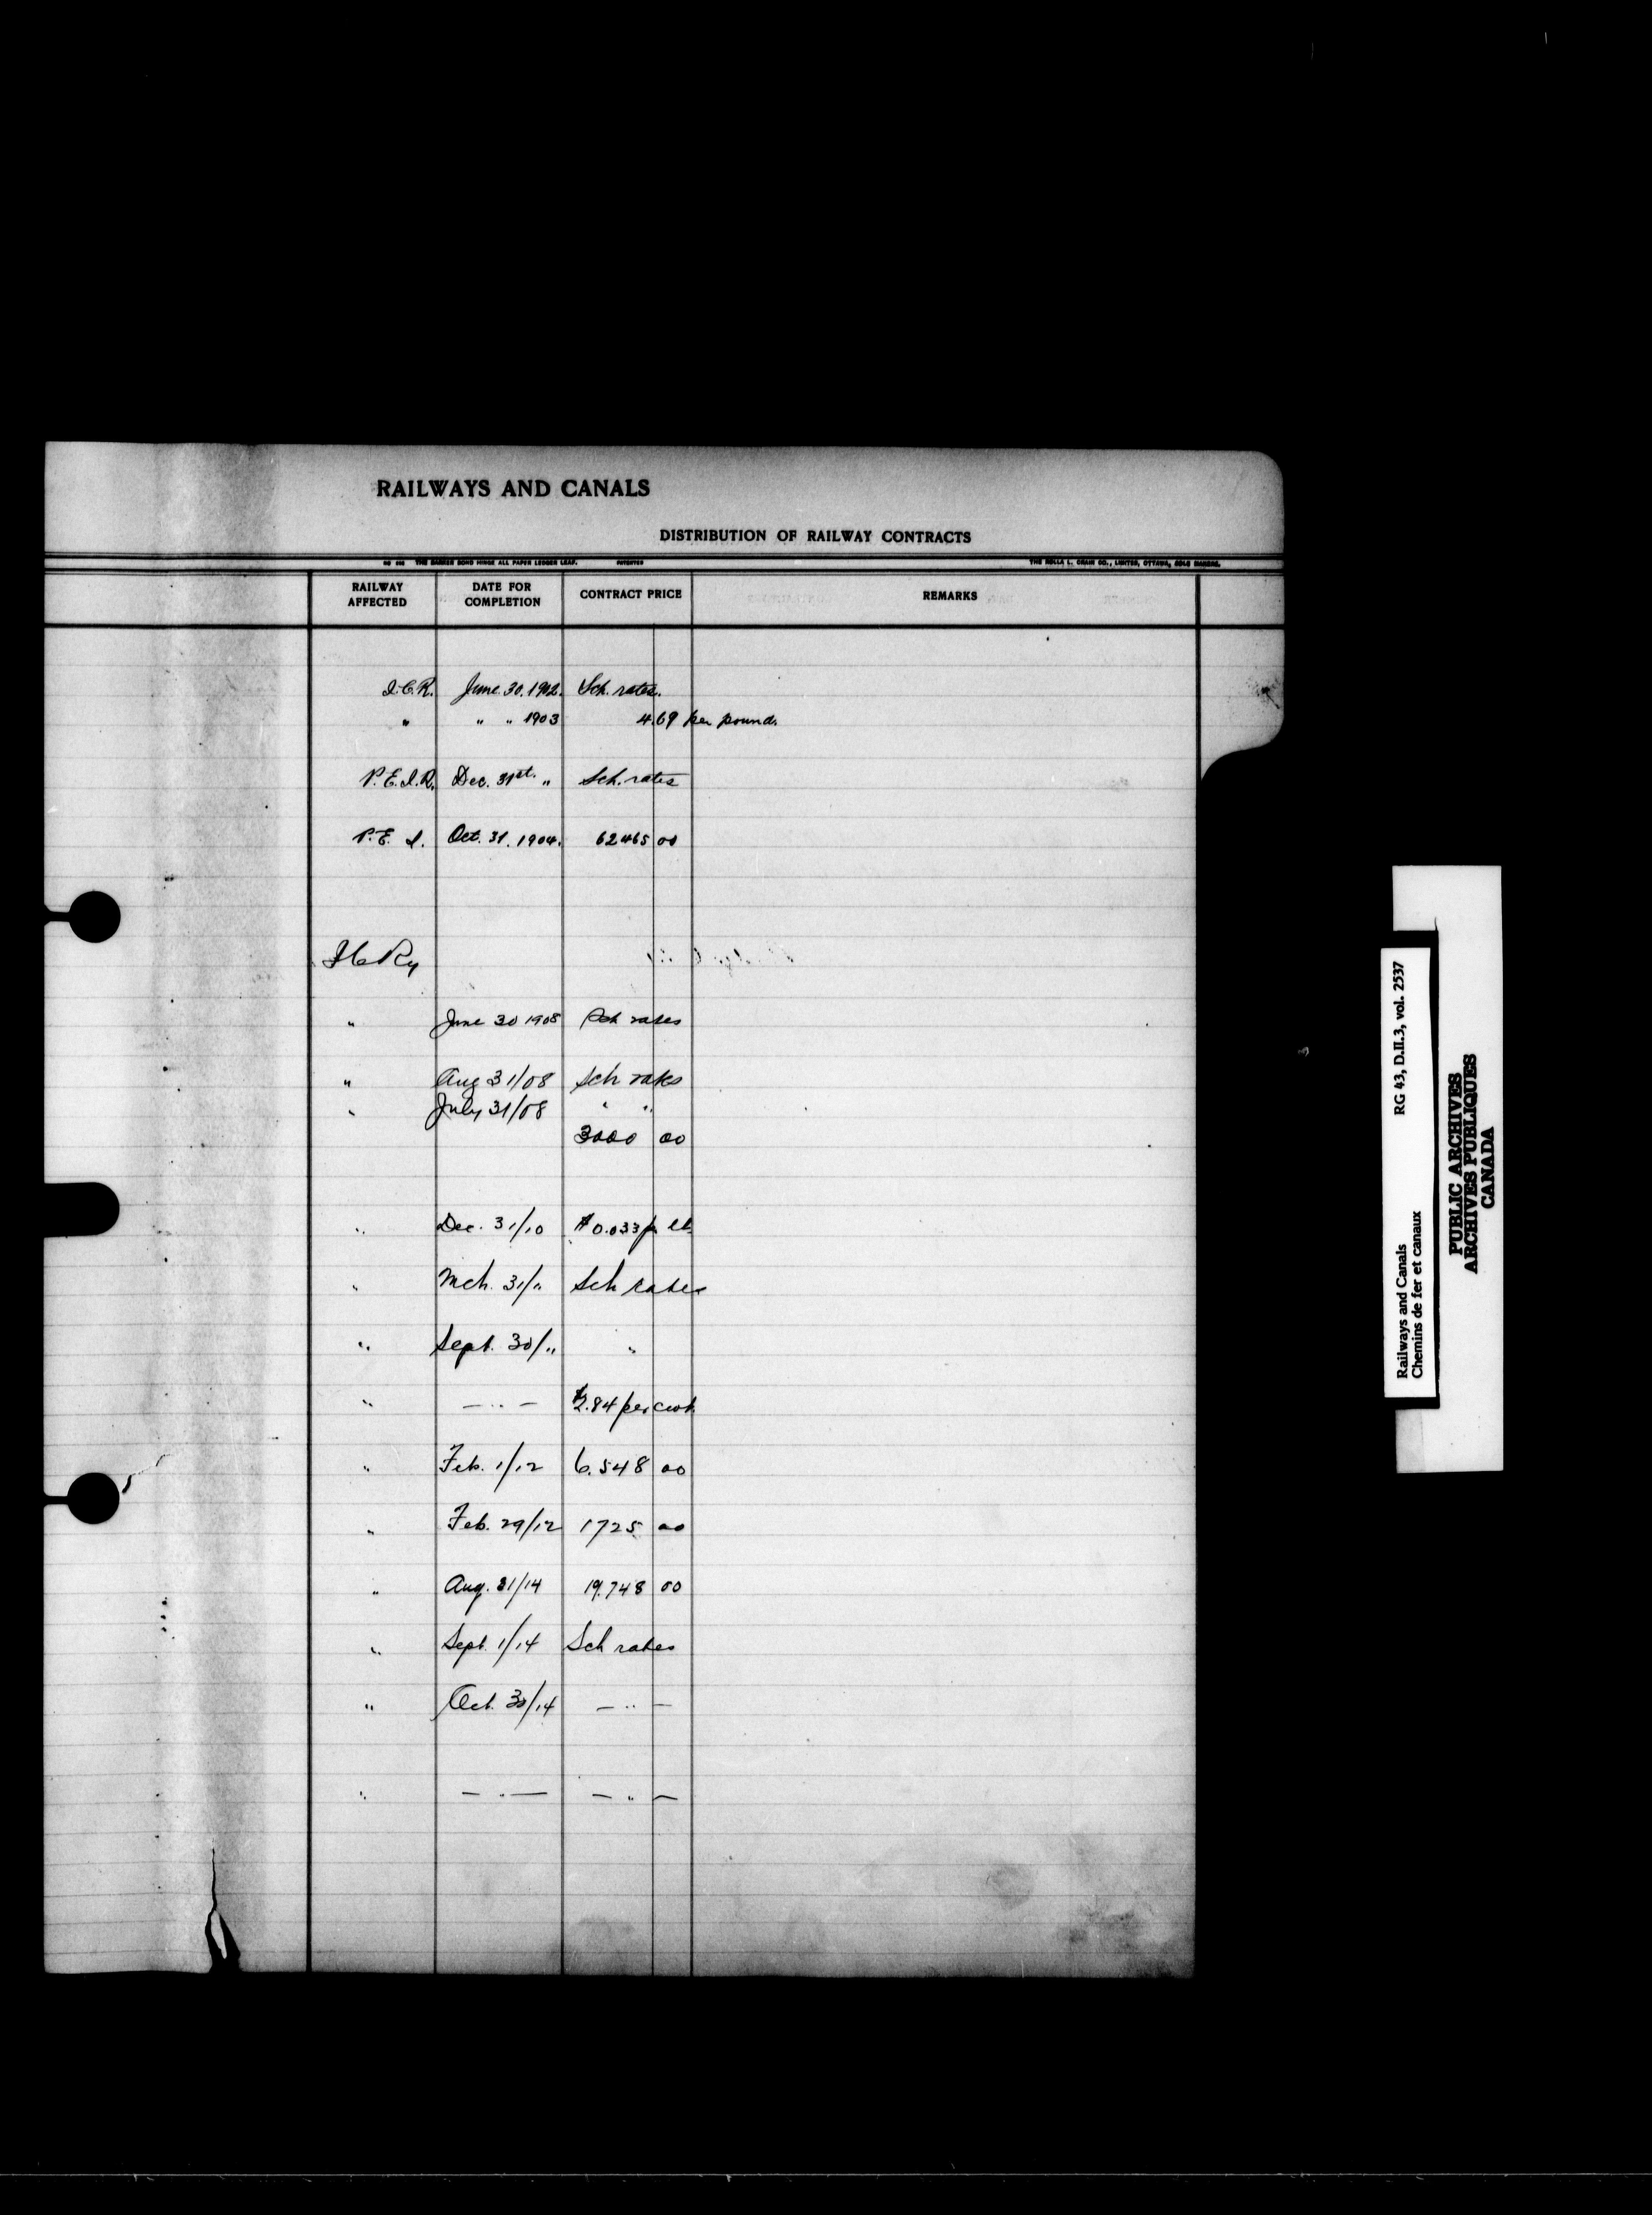 RAILWAYS AND CANALS
DISTRIBUTION OF RAILWAY CONTRACTS
THE BARBER BOND HINGE ALL PAPER LEDGER LEAF. PATENTED THE ROLLA L. CRAIN CO., LIMITED, OTTAWA, SOLE MAKERS.
RAILWAY AFFECTED DATE FOR COMPLETION CONTRACT PRICE REMARKS
I.C.R. June 30. 1902. Sch. rates.
" " " 1903 4.69 per pound.
P.E.I.R. Dec. 31st. " Sch. rates
P.E. I. Oct. 31. 1904. 62465 00
I C Ry
" June 30 1908 Sch rates
" Aug 31/08 Sch rates
" July 31/08 " "
3000 00
" Dec. 31/10 $0.033 p lb
" Mch. 31/" Sch rates
" Sept. 30/" "
" — " — $2.84 per cwt.
" Feb. 1/12 6.548 00
" Feb. 29/12 1725 00
" Aug. 31/14 19.748 00
" Sept. 1/14 Sch rates
" Oct. 30/14 — " —
" — " — — " —
Railways and Canals RG 43, D.II.3, vol. 2537
Chemins de fer et canaux
PUBLIC ARCHIVES
ARCHIVES PUBLIQUES
CANADA